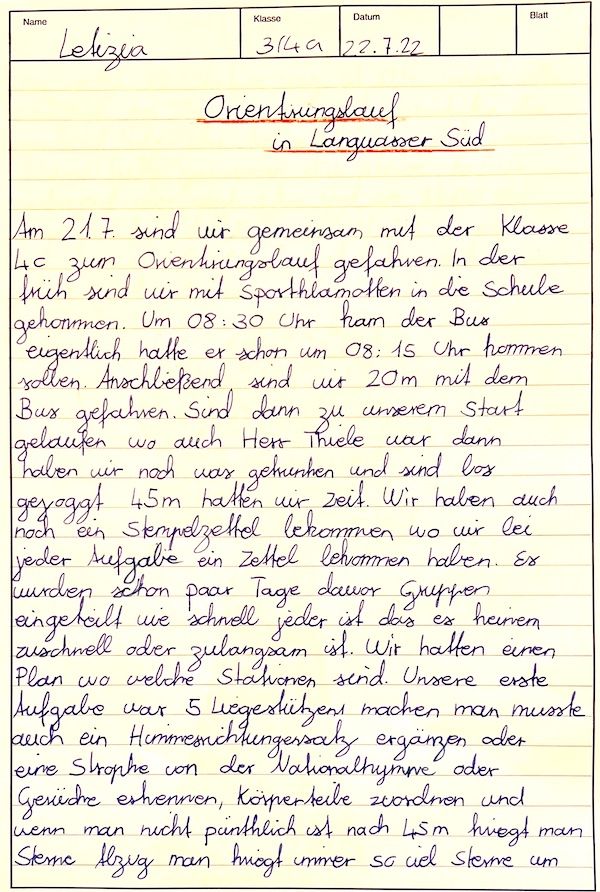 Name
Klasse
Datum
Blatt
Letizia
3/4a
22.7.22
Orientirungslauf
in Languasser Süd
Am 21.7. sind wir gemeinsam mit der Klasse
4c zum Orientirungslauf gefahren. In der
früh sind wir mit Sportklamotten in die Schule
gekommen. Um 08:30 Uhr kam der Bus
eigentlich hatte er schon um 08:15 Uhr kommen
sollen. Anschließend sind wir 20m mit dem
Bus gefahren. Sind dann zu unserem Start
gelaufen wo auch Herr Thiele war dann
haben wir noch was getrunken und sind los
gejoggt 45m hatten wir Zeit. Wir haben auch
noch ein Stempelzettel bekommen wo wir bei
jeder Aufgabe ein Zettel bekommen haben. Es
wurden schon paar Tage davor Gruppen
eingeteilt wie schnell jeder ist das es keinem
zuschnell oder zulangsam ist. Wir hatten einen
Plan wo welche Stationen sind. Unsere erste
Aufgabe war 5 Liegestützen machen man musste
auch ein Himmesrichtungensatz ergänzen oder
eine Strophe von der Nationalhymne oder
Gerüche erkennen, Körperteile zuordnen und
wenn man nicht pünktlich ist nach 45m kriegt man
Sterne Abzug man kriegt immer so viel Sterne um